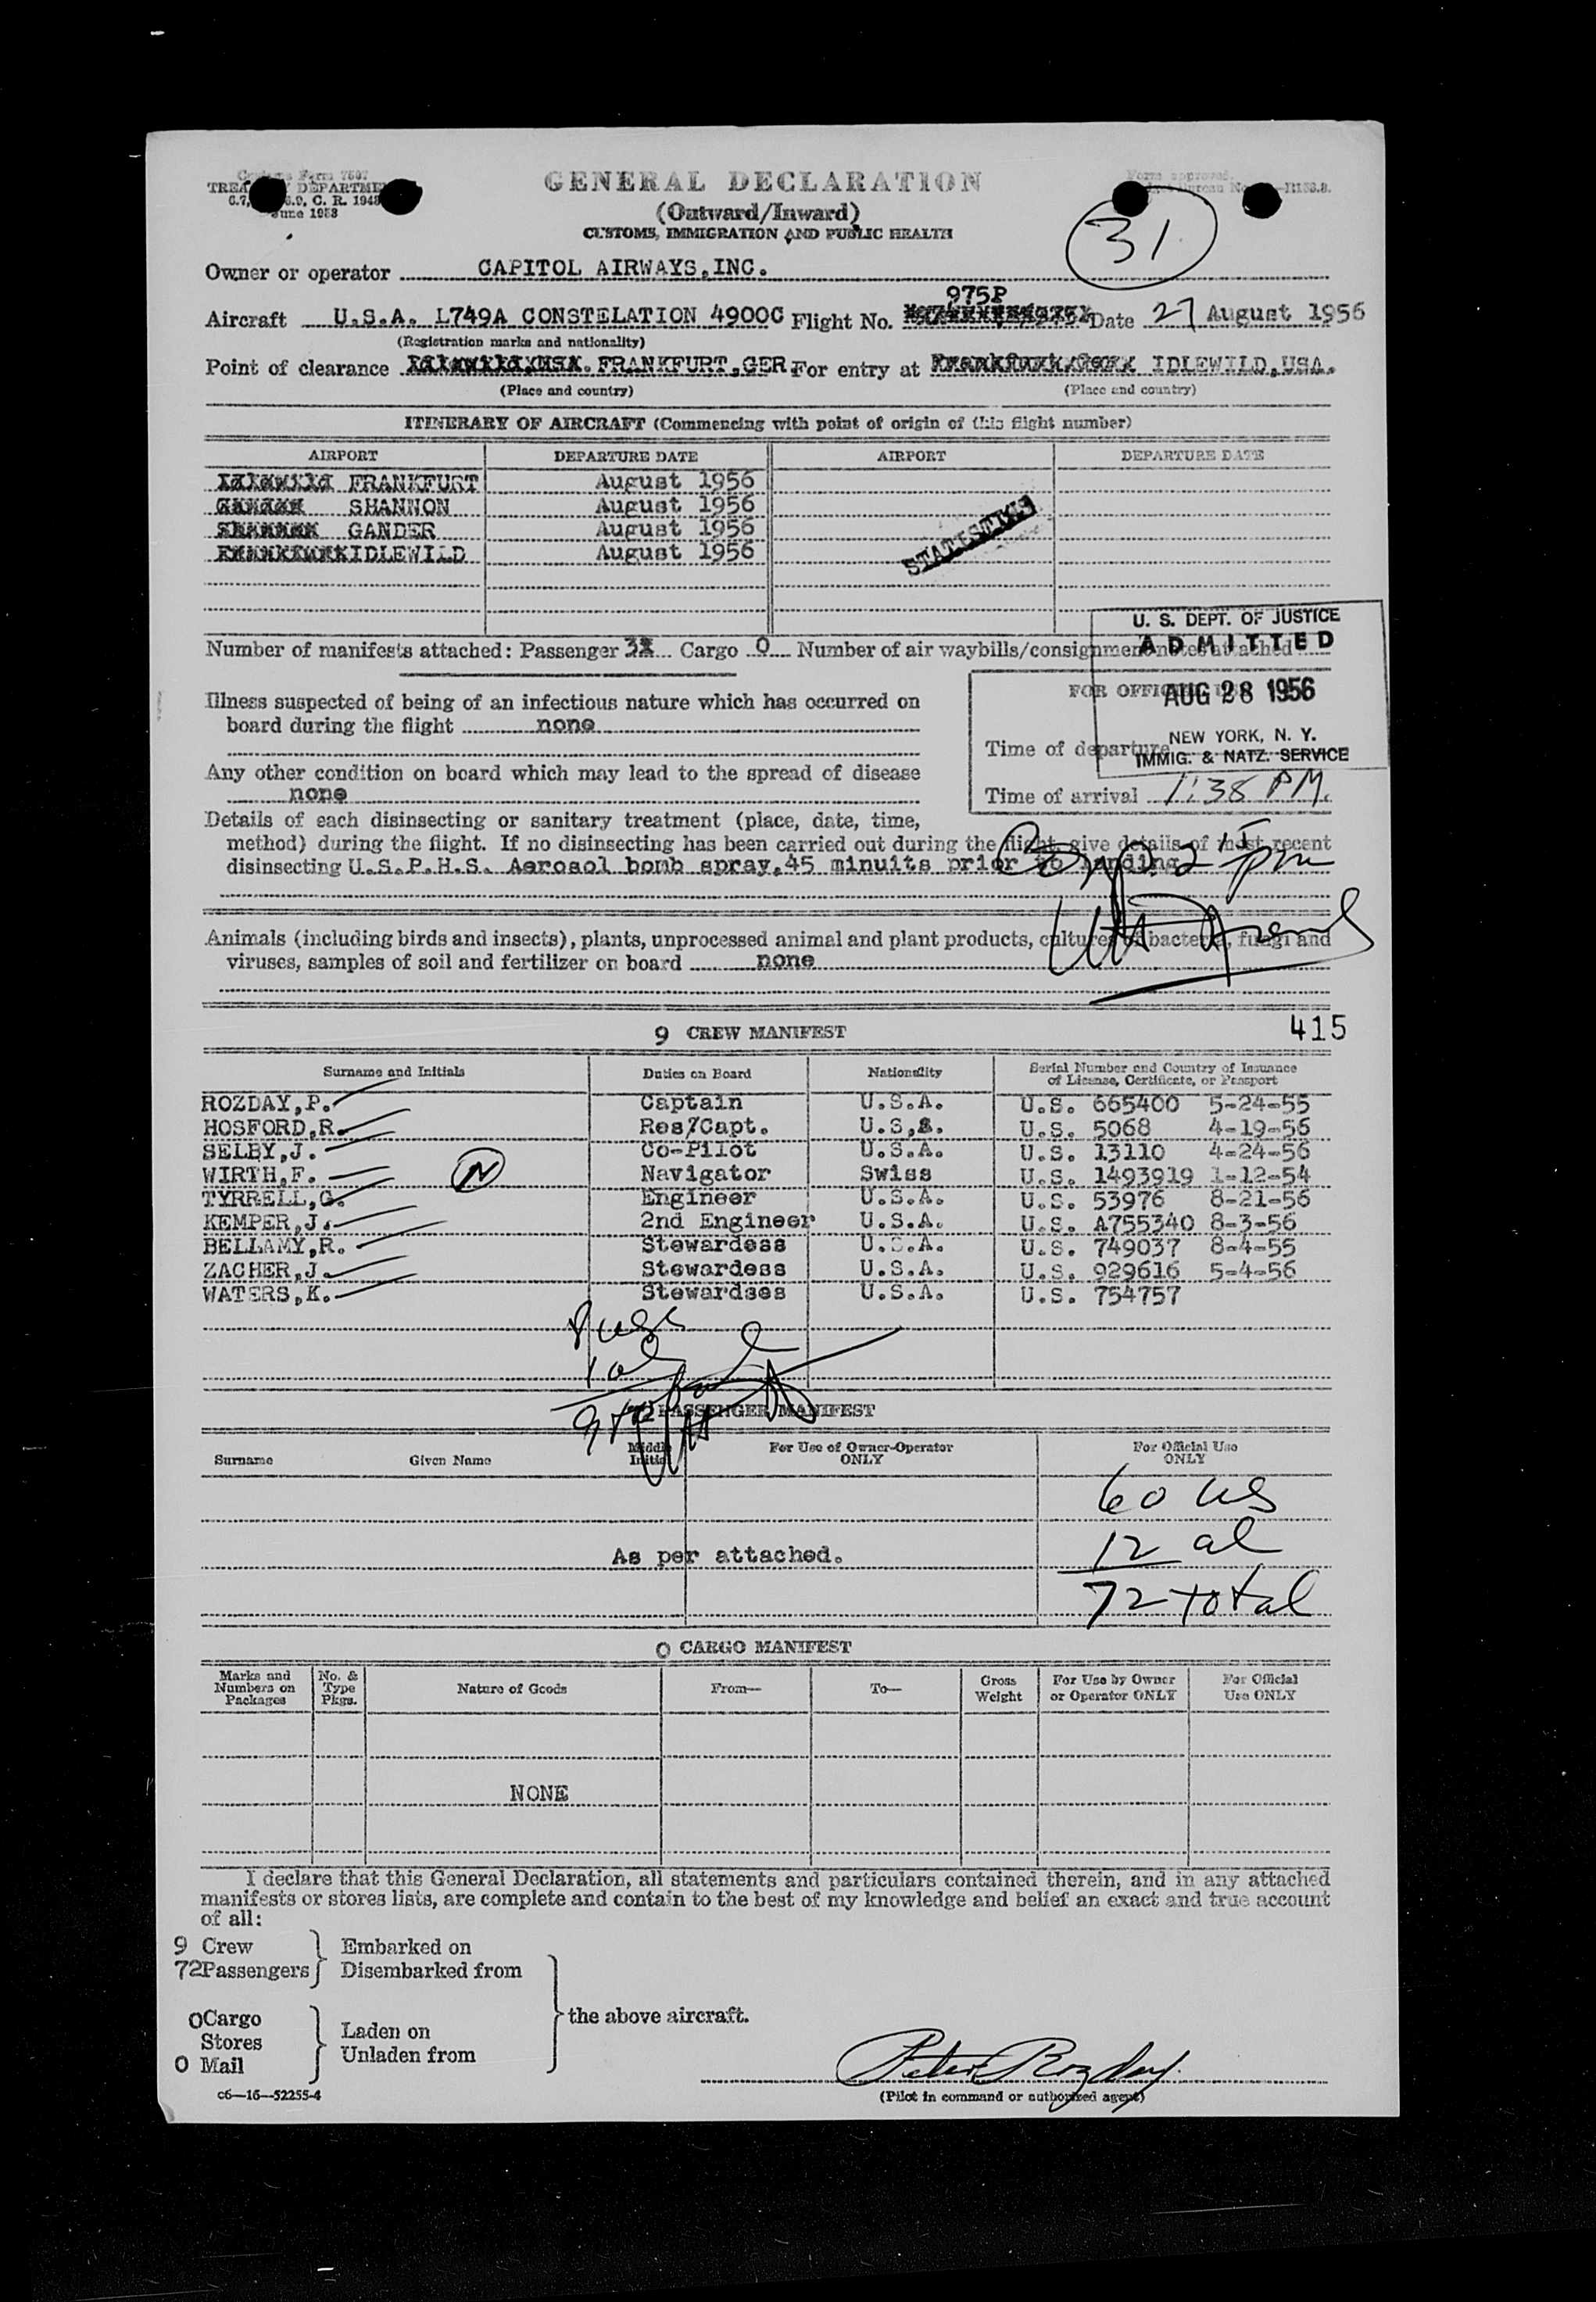 Customs Form 7507
TREASURY DEPARTMENT
C. R. 1943
June 1953
GENERAL DECLARATION
(Outward/Inward)
CUSTOMS, IMMIGRATION AND PUBLIC HEALTH
Form approved.
31
Owner or operator CAPITOL AIRWAYS,INC.
975P
Aircraft U.S.A. L749A CONSTELATION 4900C Flight No. Date 27 August 1956
(Registration marks and nationality)
Point of clearance FRANKFURT,GER For entry at IDLEWILD,USA.
(Place and country) (Place and country)
ITINERARY OF AIRCRAFT (Commencing with point of origin of this flight number)
AIRPORT DEPARTURE DATE AIRPORT DEPARTURE DATE
Idlewild FRANKFURT August 1956
SHANNON August 1956
GANDER August 1956
IDLEWILD August 1956
STATISTICS
U. S. DEPT. OF JUSTICE
ADMITTED
AUG 28 1956
NEW YORK, N. Y.
IMMIG. & NATZ. SERVICE
Number of manifests attached: Passenger 3 Cargo 0 Number of air waybills/consignment notes attached
Illness suspected of being of an infectious nature which has occurred on
board during the flight none
FOR OFFICIAL USE
Time of departure
Any other condition on board which may lead to the spread of disease
none
Time of arrival 1:38 PM.
Details of each disinsecting or sanitary treatment (place, date, time,
method) during the flight. If no disinsecting has been carried out during the flight give details of most recent
disinsecting U.S.P.H.S. Aerosol bomb spray,45 minuits prior to landing
Animals (including birds and insects), plants, unprocessed animal and plant products, cultures of bacteria, fungi and
viruses, samples of soil and fertilizer on board none
9 CREW MANIFEST 415
Surname and Initials Duties on Board Nationality Serial Number and Country of Issuance of License, Certificate, or Passport
ROZDAY,P. Captain U.S.A. U.S. 665400 5-24-55
HOSFORD,R. Res/Capt. U.S.A. U.S. 5068 4-19-56
SELBY,J. Co-Pilot U.S.A. U.S. 13110 4-24-56
WIRTH,F. N Navigator Swiss U.S. 1493919 1-12-54
TYRRELL,G. Engineer U.S.A. U.S. 53976 8-21-56
KEMPER,J. 2nd Engineer U.S.A. U.S. A755340 8-3-56
BELLAMY,R. Stewardess U.S.A. U.S. 749037 8-4-55
ZACHER,J. Stewardess U.S.A. U.S. 929616 5-4-56
WATERS,K. Stewardses U.S.A. U.S. 754757
8 usc
1 al
9
72 PASSENGER MANIFEST
Surname Given Name Middle Initial For Use of Owner-Operator ONLY For Official Use ONLY
60 us
As per attached. 12 al
72 total
0 CARGO MANIFEST
Marks and Numbers on Packages No. & Type Pkgs. Nature of Goods From— To— Gross Weight For Use by Owner or Operator ONLY For Official Use ONLY
NONE
I declare that this General Declaration, all statements and particulars contained therein, and in any attached
manifests or stores lists, are complete and contain to the best of my knowledge and belief an exact and true account
of all:
9 Crew Embarked on
72Passengers Disembarked from
the above aircraft.
0Cargo
Stores Laden on
0 Mail Unladen from
Peter Rozday
(Pilot in command or authorized agent)
c6—16—52255-4